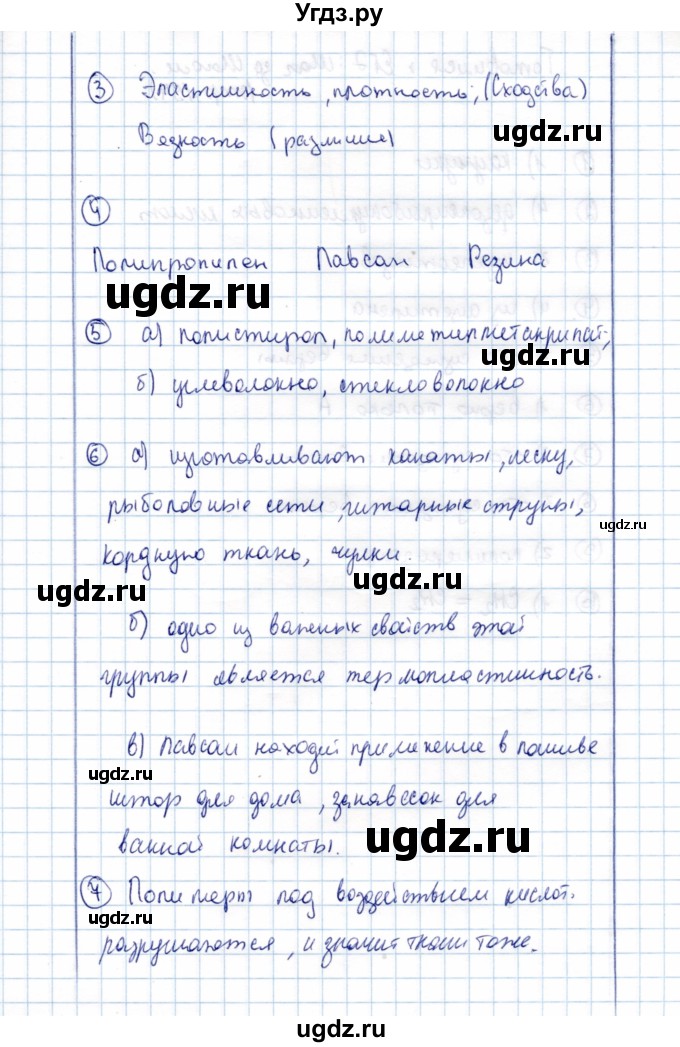 Угдз.ру
③ Эластичность, плотность, (Сходства)
ugdz.ru
Вязкость (различие)
④
Полипропилен Лавсан Резина
ugdz.ru
⑤ а) полистирол, полиметилметакрилат;
б) углеволокно, стекловолокно
⑥ а) изготавливают канаты, леску,
рыболовные сети, гитарные струны,
ugdz.ru
кордную ткань, чулки.
ugdz.ru
б) одно из важных свойств этой
группы является термопластичность.
ugdz.ru
в) Лавсан находит применение в пошиве
ugdz.ru
штор для дома, занавесок для
ванной комнаты.
ugdz.ru
⑦ Полимеры под воздействием кислот
ugdz.ru
разрушаются, и значит ткани тоже.
ugdz.ru